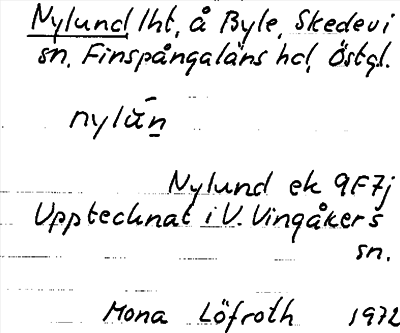 Nylund lht, å Byle, Skedevi
sn, Finspångaläns hd, Östgl.
nylu̇́n
Nylund ek 9F7j
Upptecknat i V. Vingåkers
sn.
Mona Löfroth 1972